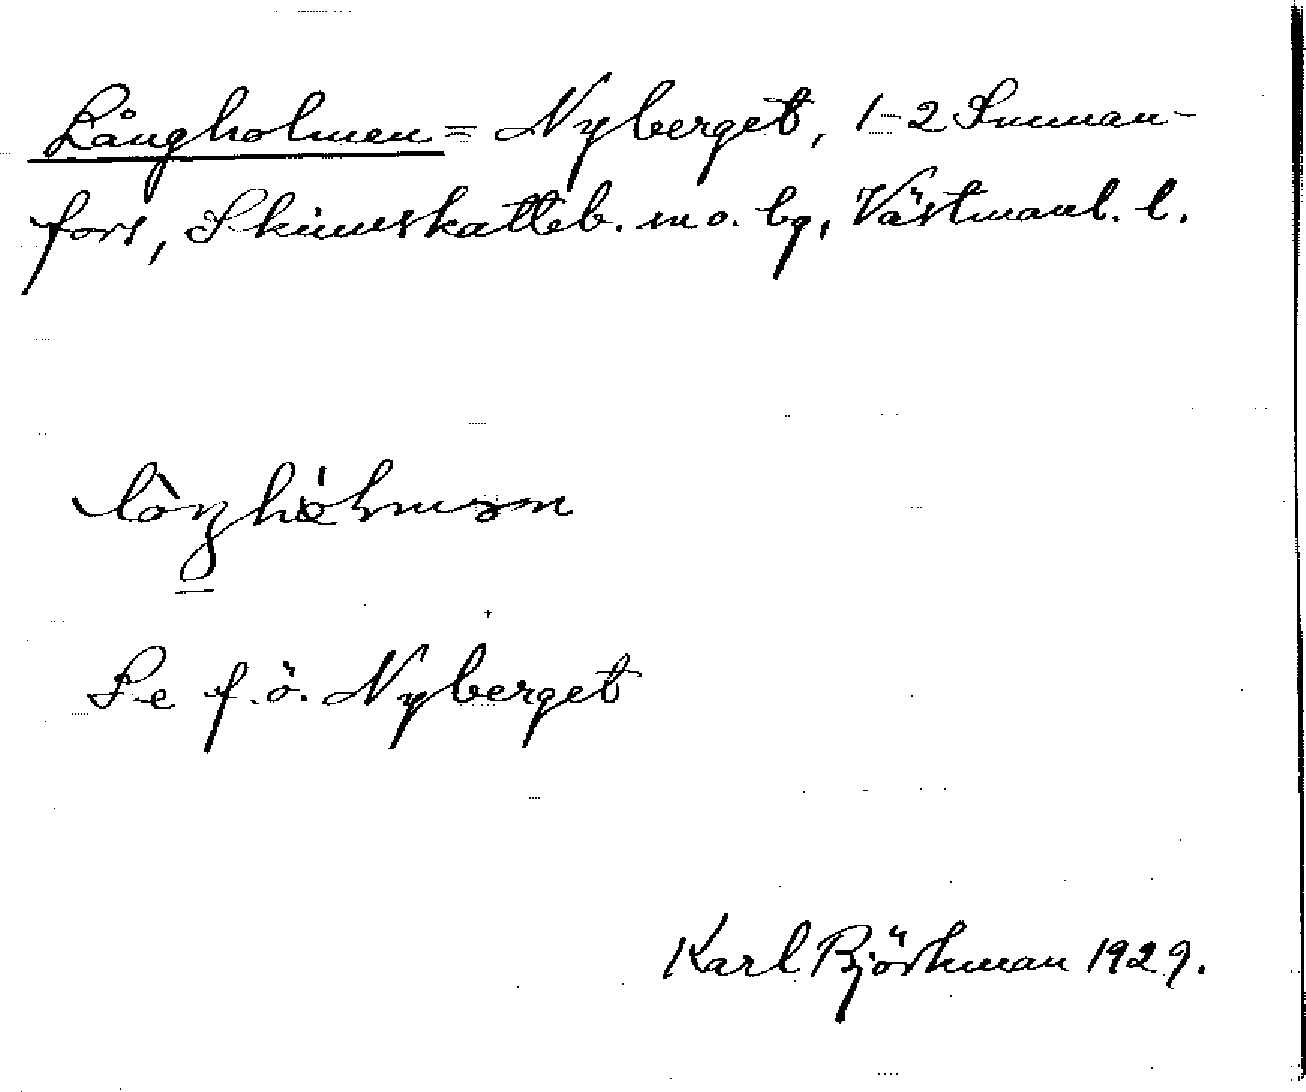 Långholmen = Nyberget, 1-2 Imman-
fors, Skinnskatteb. sn o. bg, Västmanl. l.
Se f. ö. Nyberget
Karl Björkman 1929.